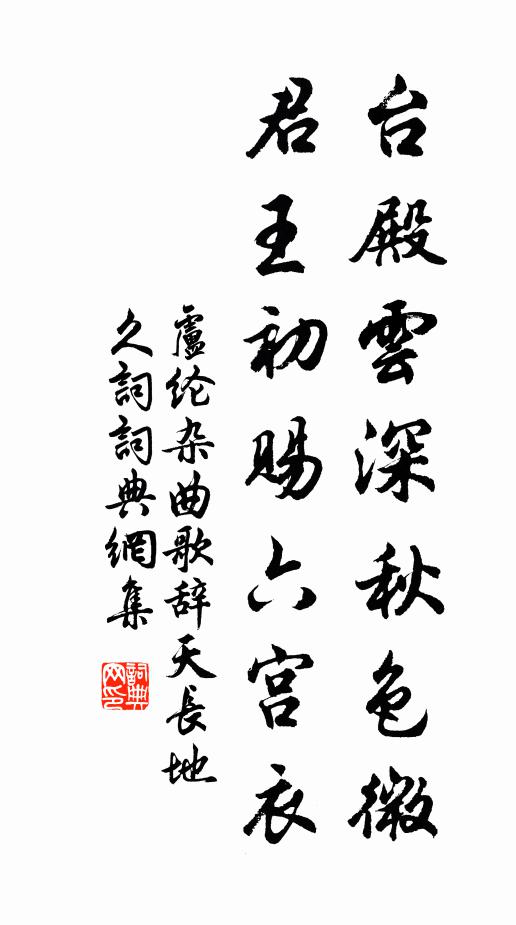 台殿雲深秋色微
君王初賜六宫衣
盧纶杂曲歌辞天長地
久詞詞典網集
詞典
网印